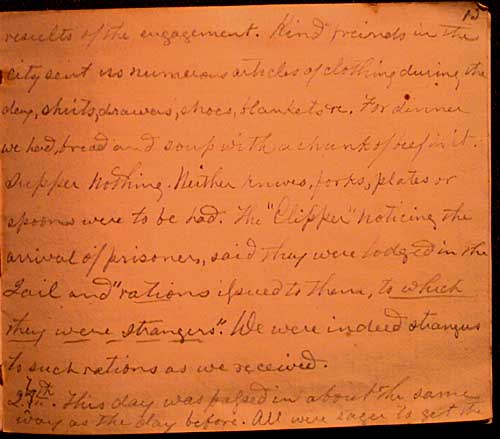 12
results of the engagement. Kind freinds in the
city sent us numerous articles of clothing during the
day, shirts, drawers, shoes, blankets &c. For dinner
we had, bread and soup with a chunk of beef in it.
Supper nothing. Neither knives, forks, plates or
spoons were to be had. The "Clipper" noticing the
arrival of prisoners, said they were lodged in the
Jail and "rations issued to them, to which
they were strangers". We were indeed strangers
to such rations as we received.
27th. This day was passed in about the same
way as the day before. All were eager to get the